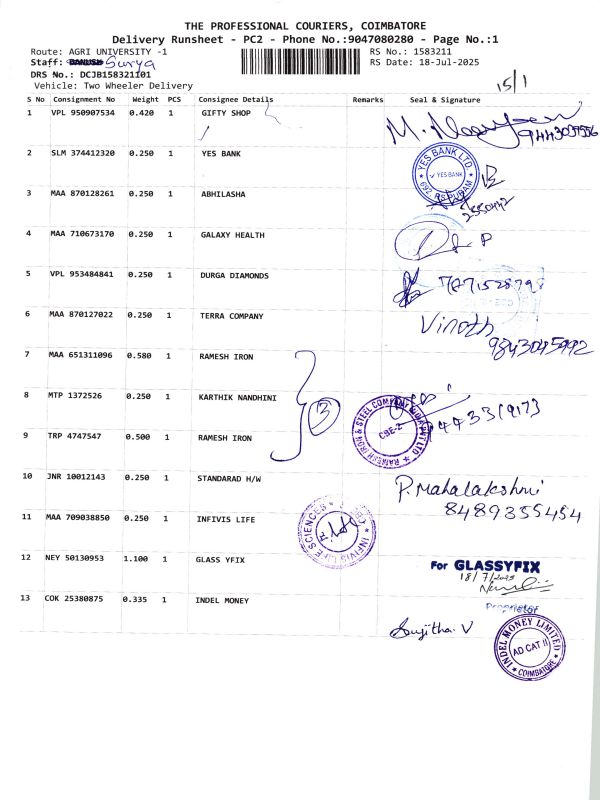 THE PROFESSIONAL COURIERS, COIMBATORE
Delivery Runsheet - PC2 - Phone No.:9047080280 - Page No.:1
Route: AGRI UNIVERSITY -1
RS No.: 1583211
Staff: Surya
RS Date: 18-Jul-2025
DRS No.: DCJB158321101
Vehicle: Two Wheeler Delivery
15/1
S No Consignment No Weight PCS Consignee Details Remarks Seal & Signature
1 VPL 950907534 0.420 1 GIFTY SHOP
2 SLM 374412320 0.250 1 YES BANK
YES BANK LTD.
YES BANK
692, RS PURAM
3 MAA 870128261 0.250 1 ABHILASHA
4 MAA 710673170 0.250 1 GALAXY HEALTH
5 VPL 953484841 0.250 1 DURGA DIAMONDS
6 MAA 870127022 0.250 1 TERRA COMPANY
Vinoth
9843045992
7 MAA 651311096 0.580 1 RAMESH IRON
8 MTP 1372526 0.250 1 KARTHIK NANDHINI
3
RAMESH IRON & STEEL COMPANY INDIA PVT LTD
CBE-2
9 TRP 4747547 0.500 1 RAMESH IRON
10 JNR 10012143 0.250 1 STANDARAD H/W
P. Mahalakshmi
8489355454
11 MAA 709038850 0.250 1 INFIVIS LIFE
INFIVIS LIFE SCIENCES
12 NEY 50130953 1.100 1 GLASS YFIX
For GLASSYFIX
18/7/2025
Proprietor
13 COK 25380875 0.335 1 INDEL MONEY
Sujitha. V
INDEL MONEY LIMITED
AD CAT II
COIMBATORE